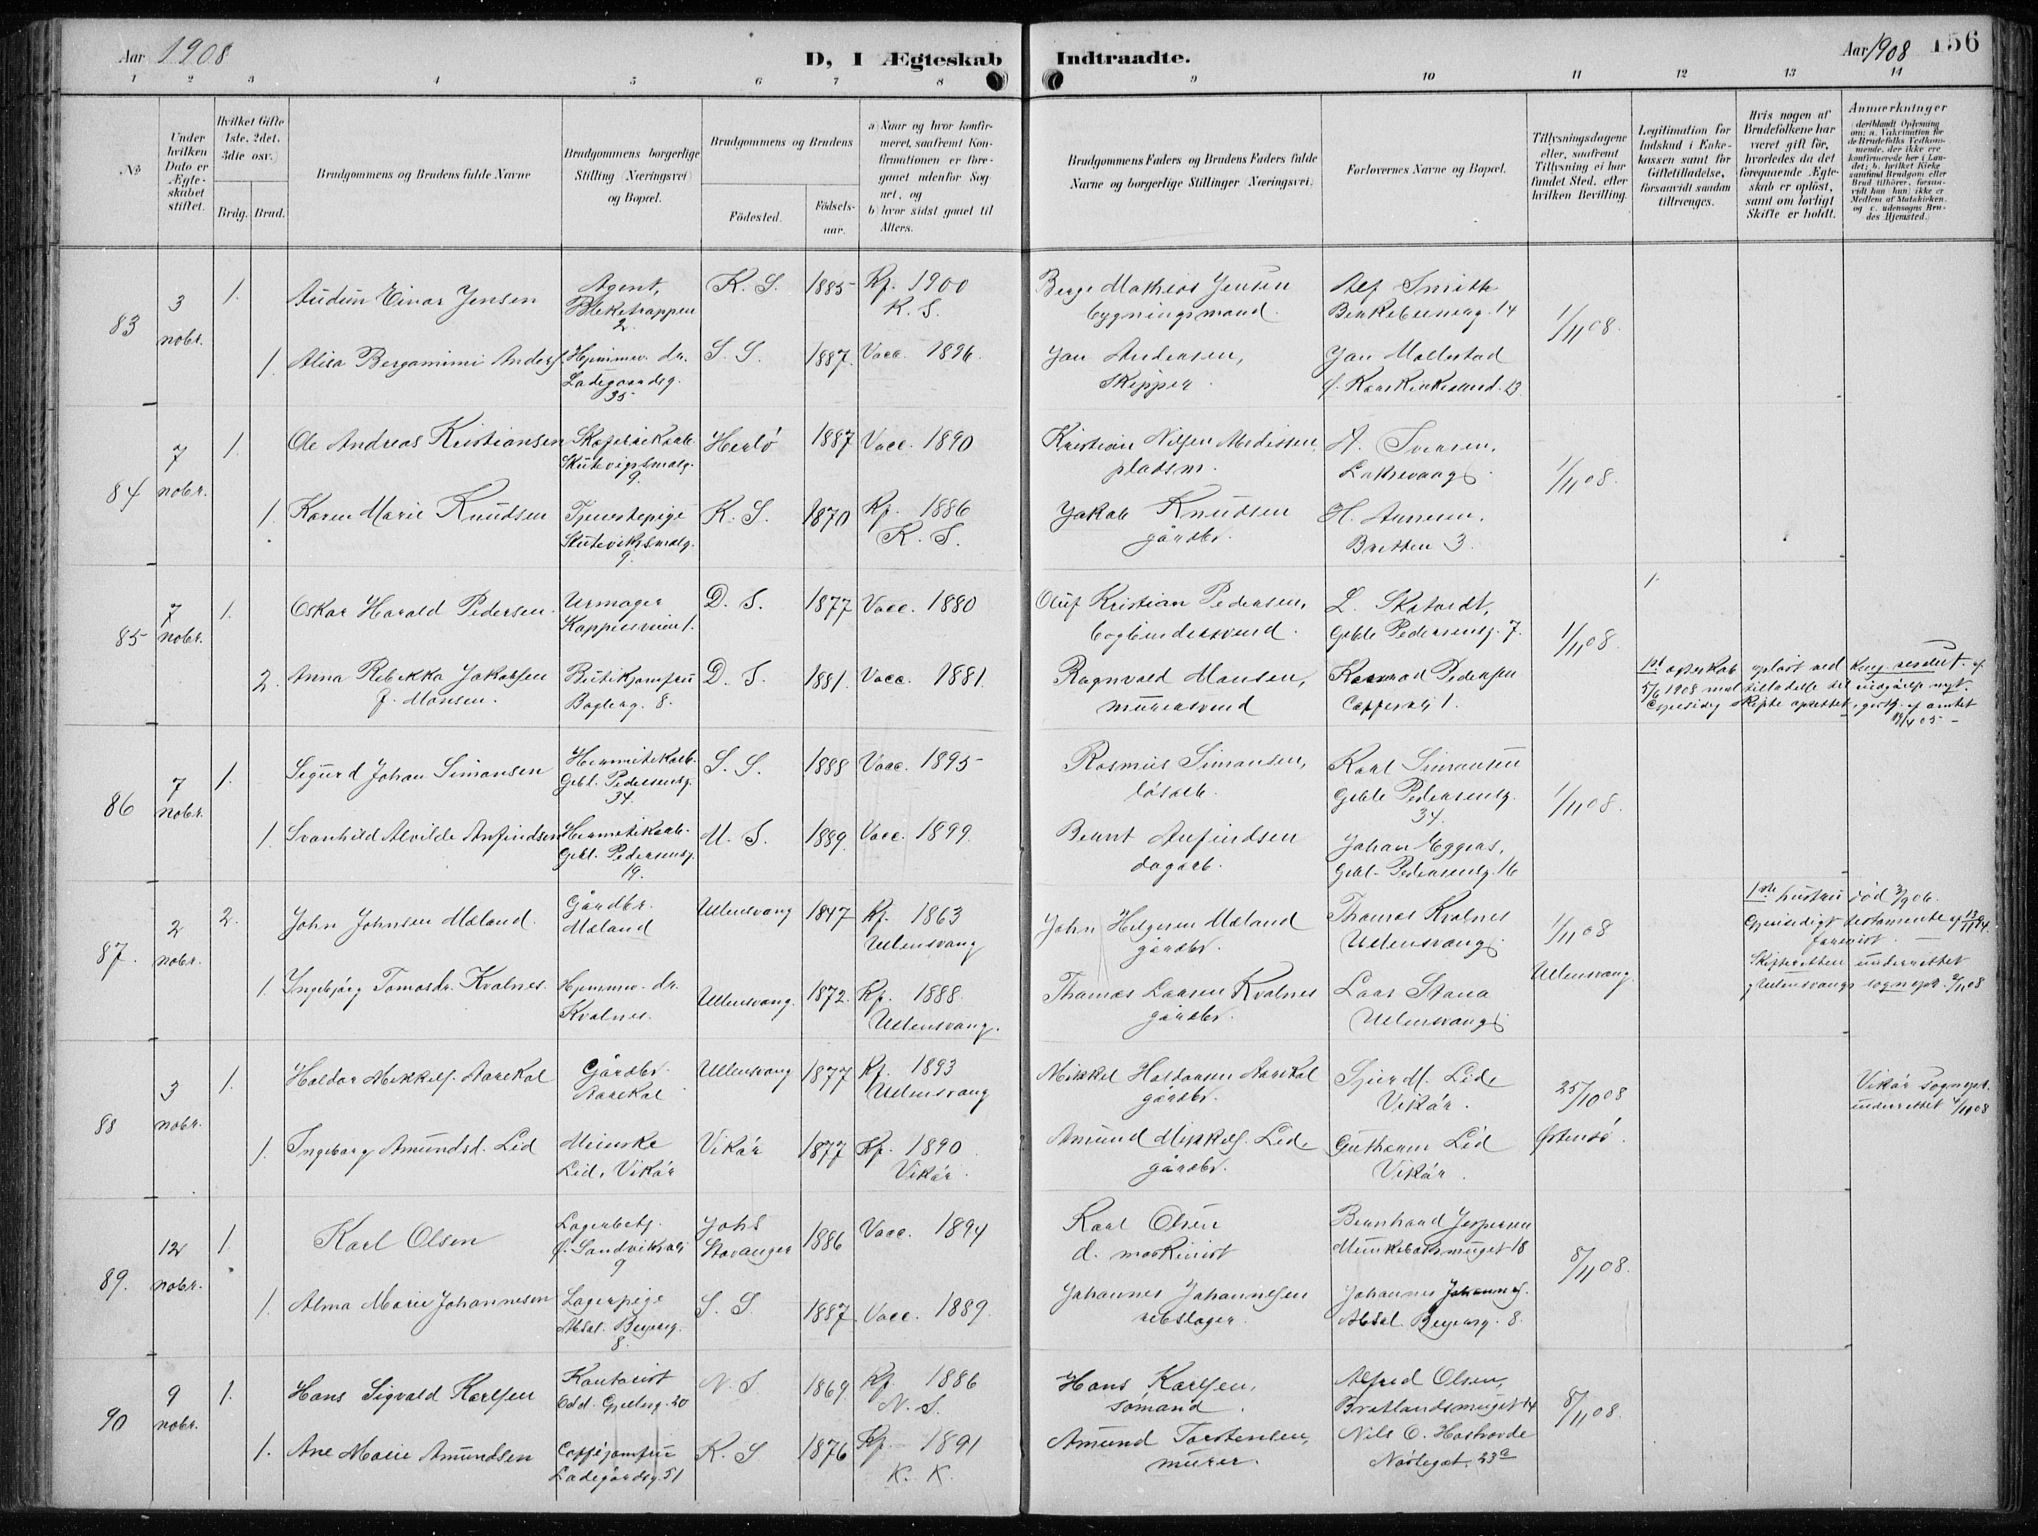 Aar 1908
D, I Ægteskab Indtraadte.
Aar 1908 156
1 2 3 4 5 6 7 8 9 10 11 12 13 14
No
Under hvilken Dato er Ægteskabet stiftet.
Hvilket Gifte 1ste, 2det, 3die osv.)
Brdg. Brud.
Brudgommens og Brudens fulde Navne
Brudgommens borgerlige Stilling (Næringsvei) og Bopæl.
Brudgommens og Brudens
Födested.
Födsels-aar.
a) Naar og hvor konfirmeret, saafremt Konfirmationen er foregaaet udenfor Sognet, og
b) hvor sidst gaaet til Alters.
Brudgommens Faders og Brudens Faders fulde Navne og borgerlige Stillinger (Næringsvei)
Forlovernes Navne og Bopæl.
Tillysningsdagene eller, saafremt Tillysning ei har fundet Sted, efter hvilken Bevilling.
Legitimation for Indskud i Enkekassen samt for Giftetilladelse, forsaavidt saadan tiltrænges.
Hvis nogen af Brudefolkene har været gift för, hvorledes da det foregaaende Ægteskab er oplöst, samt om lovligt Skifte er holdt.
Anmærkninger
(deriblandt Oplysning om: a. Vakcination for de Brudefolks Vedkommende, der ikke ere konfirmerede her i Landet; b. hvilket Kirkesamfund Brudgom eller Brud tilhörer, forsaavidt han (hun) ikke er Medlem af Statskirken, og c. udensogns Brudes Hjemsted.)
83 3 nobr. 1. Audun Einar Jensen Agent, Bleketrappen 2. K. S. 1885 Kf. 1900 K. S. Berge Mathias Jensen bygningsmand. Alf Smith 14 1/11 08.
1. Alisa Bergamimi Anders. Hjemmev. dr. Ladegaardsg. 35 S. S. 1887. Vacc. 1896. Jan Andersen, Skipper. Jan Mollestad 13
84 7 nobr. 1. Ole Andreas Kristiansen Skutevigsmalg. 9. Herlö 1887 Vacc. 1890 Kristian Nilsen pladsm. A. Iversen, Laksevaag 1/11 08.
1. Karen Marie Knudsen Tjenestepige Skuteviksmalg. 9. K. S. 1870 Kf. 1886 K. S. Jakob Knudsen gårdbr. H. Bratten 3.
85 7 nobr. 1. Oskar Harald Pedersen. Urmager D. S. 1877 Vacc. 1880 Oluf Kristian Pedersen, bogbindersvend. L. Geble Pedersensg. 7. 1/11 08 1.
2. Anna Rebekka Jakobsen f. Monsen. Butikjomfru Baglerg. 8. D. S. 1881. Vacc. 1881. Ragnvald Monsen, murersvend Konrad Pedersen 1. 1ste ægteskab oplöst ved 5/6 1908 med tilladelse til indgåelse nyt.
86 7 nobr. 1. Sigurd Johan Simonsen Hermetikarb. Gebl. Pedersensg. 34. S. S. 1888 Vacc. 1895 Rasmus Simonsen, lösarb. Karl Simonsen Geble Pedersensg. 34. 1/11 08.
1. Svanhild Alvilde Anfindsen Hermetikarb. Gebl. Pedersensg. 19. U. S. 1889. Vacc. 1899. Bernt Anfindsen dagarb. Johan Eggers, Gebl. Pedersensg. 16
87. 2 nobr. 2. John Johnsen Mæland. Gårdbr. Mæland Ullensvang 1847 Kf. 1863 Ullensvang John Helgesen Mæland gårdbr. Thomas Kvalnes Ullensvang. 1/11 08 Ullensvang. 1ste hustru död 3/9 06. Gjensidigt testamente forevist. Skifteretten underrettet Ullensvang sognepr. 2/11 08
1. Ingebjörg Tomasdr. Kvalnes. Hjemmev. dr. Kvalnes. Ullensvang. 1872. Kf. 1888. Ullensvang. Thomas Larsen Kvalnes gårdbr. Lars Stana Ullensvang.
88 3 nobr. 1. Haldor Mikkels. Aarekol Gårdbr. Aarekol Ullensvang 1877 Kf. 1893 Ullensvang Mikkel Haldorsen Aarekol gårdbr. Sjur M. Lid Vikör. 25/10 08 Östensö. Vikör Sognepr. underrettet 4/11 08
1. Ingeborg Amundsd. Lid Meieske Lid, Vikör Vikör 1877 Kf. 1890 Vikör. Amund Mikkels. Lid gårdbr. Guthorm Lid Vikör.
89. 12 nobr. 1. Karl Olsen Lagerbetj. 9 Johs Stavanger 1886 Vacc. 1894 Karl Olsen d. maskinist Bernhard Jespersen Munkebotsmuget 18 8/11 08.
1. Alma Marie Johannesen Lagerpige Absal. Beyersg. 8. S. S. 1887. Vacc. 1889. Johannes Johannesen rebslager. Johannes Johannes. Absal. Beyersg. 8.
90 9 nobr. 1. Hans Sigvald Karlsen Kontorist Odd. Gjelsvg. 20 N. S. 1869. Kf. 1886 N. S. Hans Karlsen, sömand. Alfred Olsen, Bratlandsmuget 14 8/11 08.
1. Ane Marie Amundsen Caffejomfru Ladegårdsg. 51 K. S 1876 Kf. 1891 K. K. Amund Torstensen, murer. Nils O. 23a